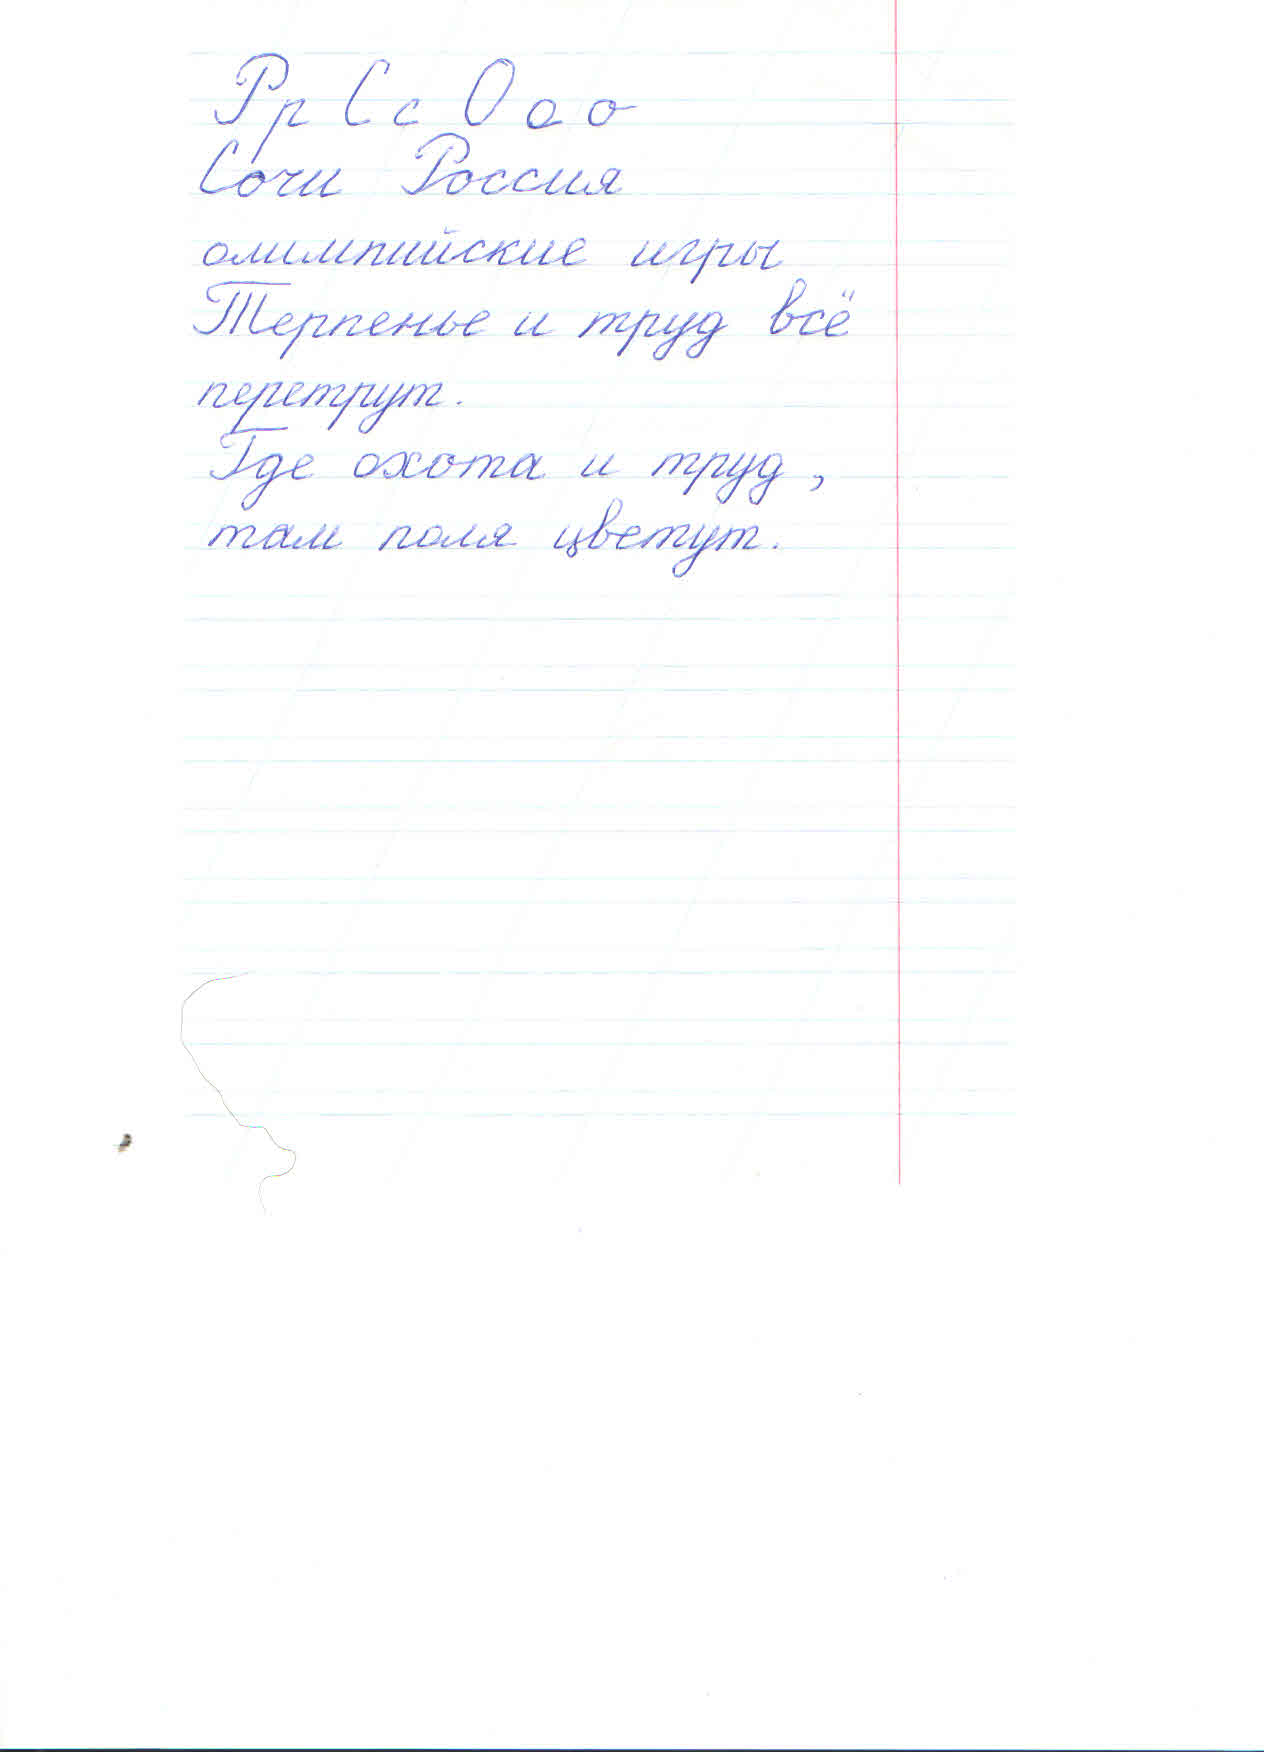 Рр Сс О о о
Сочи Россия
олимпийские игры
Терпенье и труд всё
перетрут.
Где охота и труд,
там поля цветут.